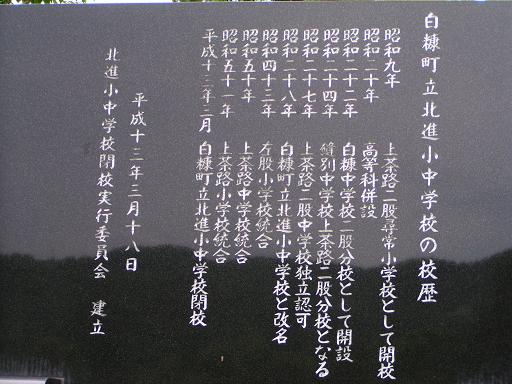 白糠町立北進小中学校の校歴
昭和九年 上茶路二股尋常小学校として開校
昭和二十年 高等科併設
昭和二十二年 白糠中学校二股分校として開設
昭和二十四年 縫別中学校上茶路二股分校となる
昭和二十七年 上茶路二股中学校独立認可
昭和二十八年 白糠町立北進小中学校と改名
昭和四十三年 左股小学校統合
昭和五十年 上茶路中学校統合
昭和五十一年 上茶路小学校統合
平成十三年三月 白糠町立北進小中学校閉校
平成十三年三月十八日
北進小中学校閉校実行委員会 建立